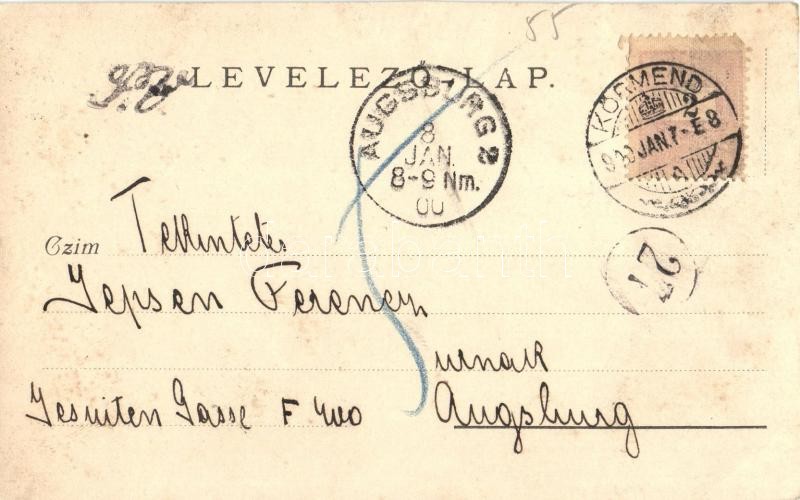 55
LEVELEZŐ LAP.
AUGSBURG 2
8
JAN.
8-9 Nm.
00
KÖRMEND
900 JAN. 7 - E 8
27
Czim Tekintetes
Jepsen Ferencz
urnak
Jesuiten Gasse F 400 Augsburg